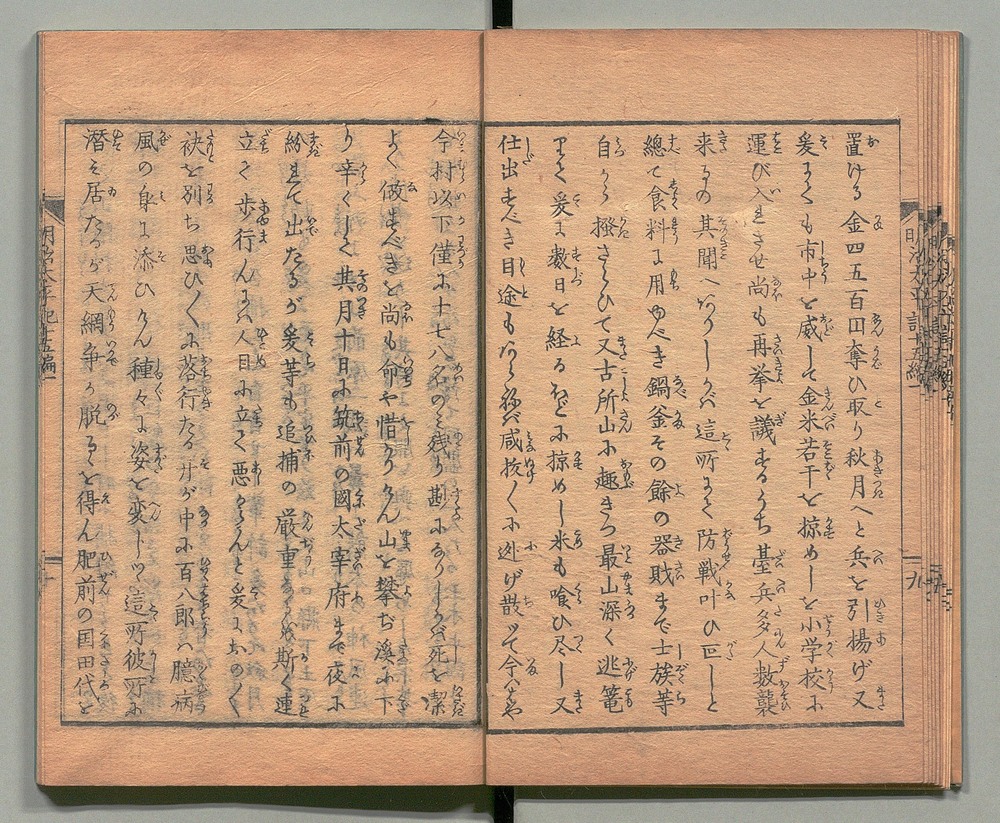 置ける金四五百円奪ひ取り秋月へと兵を引揚げ又
爰にても市中を威して金米若干を掠めしを小学校に
運び入れさせ尚も再挙を議するうち臺兵多人数襲
来るの其聞へありしかバ這所にて防戦叶ひ叵しと
總て食料に用ゆべき鍋釜その餘の器財まで士族等
自から撥さらひて又古所山に趣きつ最山深く逃篭
りて爰に数日を経るほどに掠めし米も喰ひ尽し又
仕出すべき目途もあら祢バ咸抜々に迯げ散つて今ハや
今村以下僅に十七八名のミ残り尠になりしかバ死を潔
よく做すべきを尚も命や惜かりけん山を攀ぢ溪に下
り辛くして其月十日に筑前の國太宰府まで夜に
紛れて出たるが爰等も追捕の厳重なれバ斯く連
立て歩行んにハ人目に立て悪からんと爰にておの〱
袂を別ち思ひ〱に落行たる廾が中に百八郎ハ臆病
風の身に添ひけん種々に姿を変じつゝ這所彼所に
潜ミ居たるが天網争か脱るゝを得ん肥前の国田代を
明治太平記十五編一
九